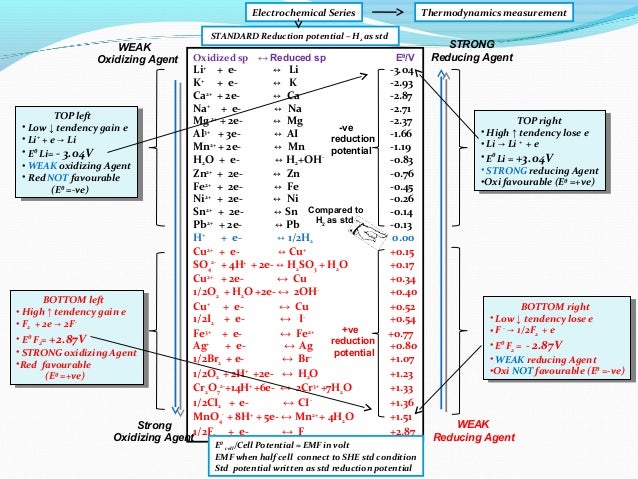 Electrochemical Series
Thermodynamics measurement
STANDARD Reduction potential – H₂ as std
WEAK
Oxidizing Agent
STRONG
Reducing Agent
Oxidized sp ↔ Reduced sp E⁰/V
Li⁺ + e- ↔ Li -3.04
K⁺ + e- ↔ K -2.93
Ca²⁺ + 2e- ↔ Ca -2.87
Na⁺ + e- ↔ Na -2.71
Mg²⁺ + 2e- ↔ Mg -2.37
Al³⁺ + 3e- ↔ Al -1.66
Mn²⁺ + 2e- ↔ Mn -1.19
H₂O + e- ↔ H₂+OH⁻ -0.83
Zn²⁺ + 2e- ↔ Zn -0.76
Fe²⁺ + 2e- ↔ Fe -0.45
Ni²⁺ + 2e- ↔ Ni -0.26
Sn²⁺ + 2e- ↔ Sn -0.14
Pb²⁺ + 2e- ↔ Pb -0.13
H⁺ + e- ↔ 1/2H₂ 0.00
Cu²⁺ + e- ↔ Cu⁺ +0.15
SO₄²⁻ + 4H⁺ + 2e- ↔ H₂SO₃ + H₂O +0.17
Cu²⁺ + 2e- ↔ Cu +0.34
1/2O₂ + H₂O +2e- ↔ 2OH⁻ +0.40
Cu⁺ + e- ↔ Cu +0.52
1/2I₂ + e- ↔ I⁻ +0.54
Fe³⁺ + e- ↔ Fe²⁺ +0.77
Ag⁺ + e- ↔ Ag +0.80
1/2Br₂ + e- ↔ Br⁻ +1.07
1/2O₂ + 2H⁺ +2e- ↔ H₂O +1.23
Cr₂O₇²⁻+14H⁺ +6e- ↔ 2Cr³⁺ +7H₂O +1.33
1/2Cl₂ + e- ↔ Cl⁻ +1.36
MnO₄⁻ + 8H⁺ + 5e- ↔ Mn²⁺ + 4H₂O +1.51
1/2F₂ + e- ↔ F +2.87
-ve
reduction
potential
Compared to
H₂ as std
+ve
reduction
potential
TOP left
• Low ↓ tendency gain e
• Li⁺ + e → Li
• E⁰ Li= - 3.04V
• WEAK oxidizing Agent
• Red NOT favourable
(E⁰ =-ve)
TOP right
• High ↑ tendency lose e
• Li → Li ⁺ + e
• E⁰ Li = +3.04V
• STRONG reducing Agent
•Oxi favourable (E⁰ =+ve)
BOTTOM left
• High ↑ tendency gain e
• F₂ + 2e → 2F⁻
• E⁰ F₂= +2.87V
• STRONG oxidizing Agent
•Red favourable
(E⁰ =+ve)
BOTTOM right
• Low ↓ tendency lose e
• F ⁻ → 1/2F₂ + e
• E⁰ F₂ = - 2.87V
• WEAK reducing Agent
•Oxi NOT favourable (E⁰ =-ve)
Strong
Oxidizing Agent
WEAK
Reducing Agent
E⁰cell/Cell Potential = EMF in volt
EMF when half cell connect to SHE std condition
Std potential written as std reduction potential